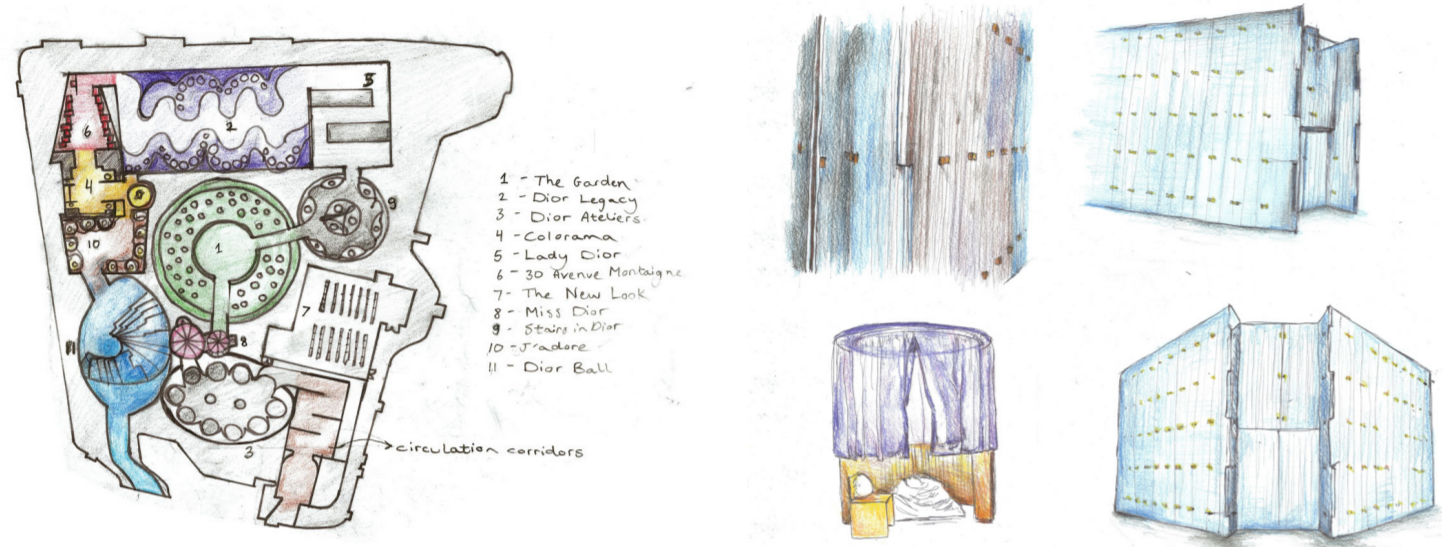 5
2
6
4
9
1
10
7
8
11
3
1 - The Garden
2 - Dior Legacy
3 - Dior Ateliers
4 - Colorama
5 - Lady Dior
6 - 30 Avenue Montaigne
7 - The New Look
8 - Miss Dior
9 - Stairs in Dior
10 - J'adore
11 - Dior Ball
circulation corridors